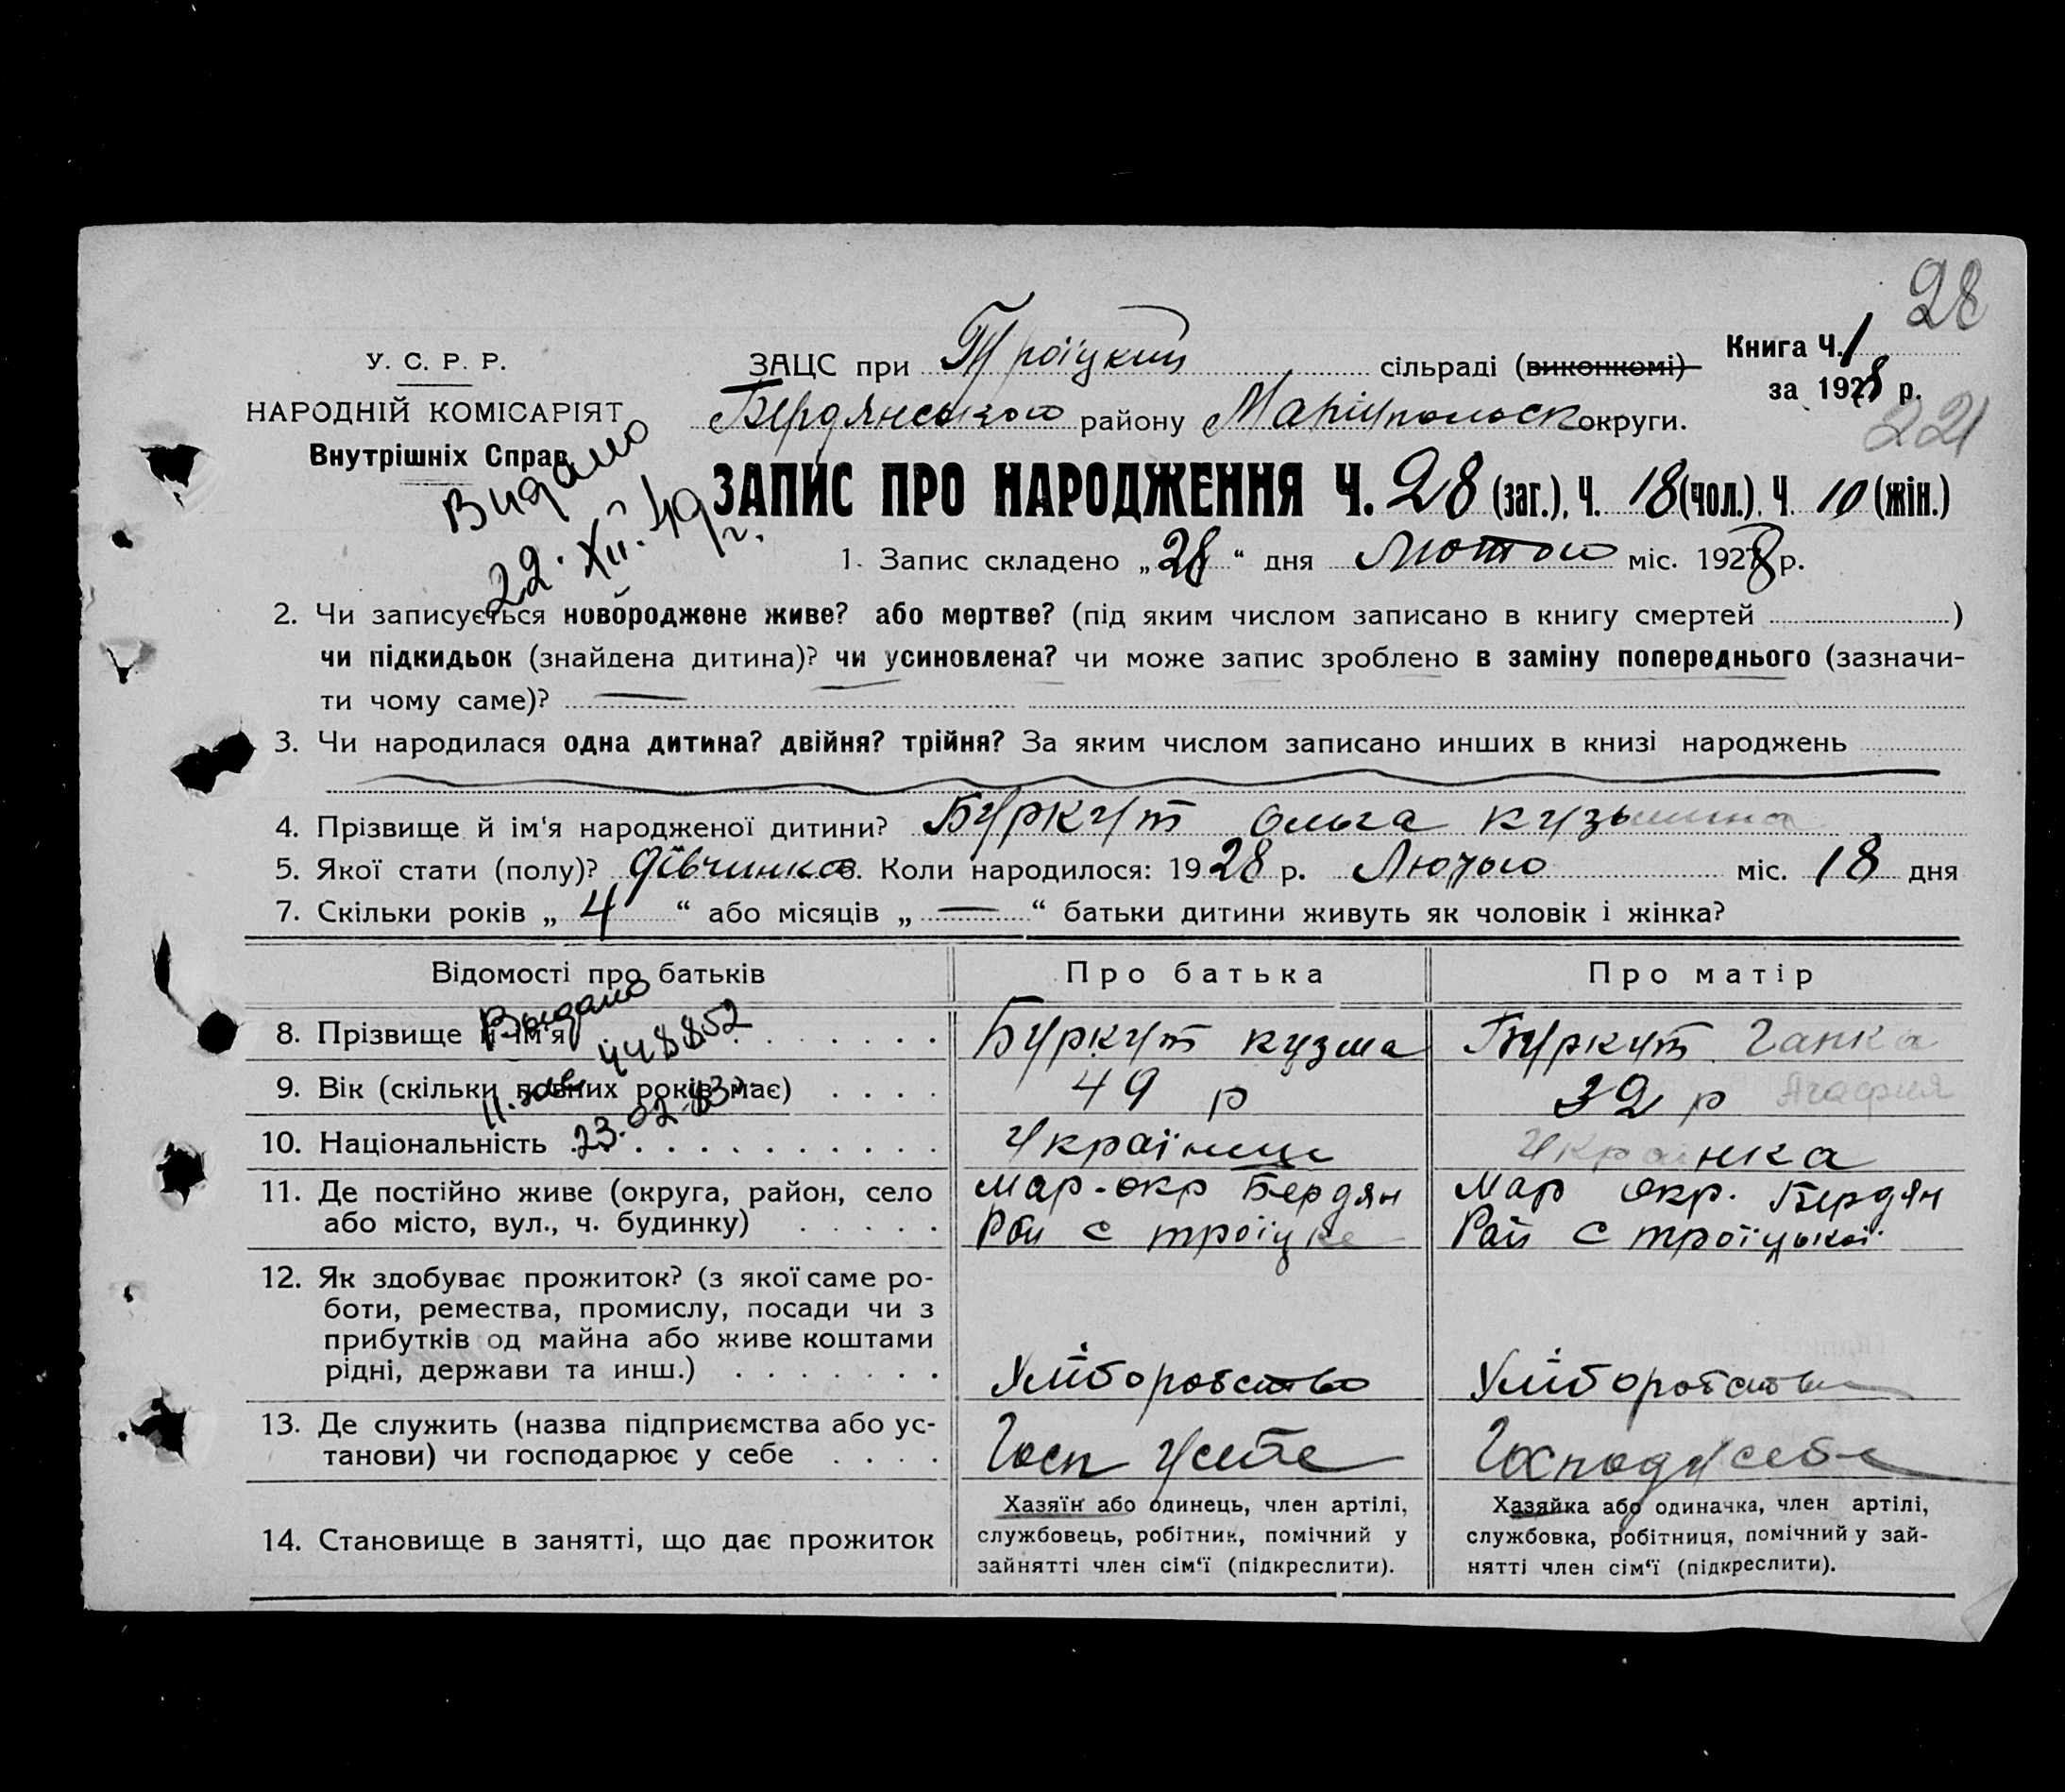 28
У. С. Р. Р.
НАРОДНІЙ КОМІСАРІЯТ
Внутрішніх Справ
ЗАЦС при Троїцкий сільраді (виконкомі)
Книга Ч. 1
за 1928 р.
Бердянського району Маріупольск округи.
221
Видано
22.XII.49 р.
ЗАПИС ПРО НАРОДЖЕННЯ Ч. 28 (заг.), Ч. 18 (чол.), Ч. 10 (жін.)
1. Запис складено „28“ дня Лютого міс. 1928 р.
2. Чи записується новороджене живе? або мертве? (під яким числом записано в книгу смертей )
чи підкидьок (знайдена дитина)? чи усиновлена? чи може запис зроблено в заміну попереднього (зазначи-
ти чому саме)? —
3. Чи народилася одна дитина? двійня? трійня? За яким числом записано инших в книзі народжень
4. Прізвище й ім‘я народженої дитини? Буркут Ольга Кузьмина
5. Якої стати (полу)? дівчинка 6. Коли народилося: 1928 р. Лютого міс. 18 дня
7. Скільки років „4“ або місяців „—“ батьки дитини живуть як чоловік і жінка?
Відомості про батьків Про батька Про матір
Выдано
448852
23.02.83
8. Прізвище й ім‘я Буркут Кузма Буркут Ганка
9. Вік (скільки повних років має) 49 р 32 р Агафия
10. Національність Українец Українка
11. Де постійно живе (округа, район, село Мар-окр Бердян Мар окр. Бердян
або місто, вул., ч. будинку) Рай с троїцке Рай с троїцької
12. Як здобуває прожиток? (з якої саме ро-
боти, ремества, промислу, посади чи з
прибутків од майна або живе коштами
рідні, держави та инш.) Хліборобство Хліборобство
13. Де служить (назва підприємства або ус-
танови) чи господарює у себе Госп усебе Господ усебе
14. Становище в занятті, що дає прожиток
Хазяїн або одинець, член артілі,
службовець, робітник, помічний у
зайнятті член сім‘ї (підкреслити).
Хазяйка або одиначка, член артілі,
службовка, робітниця, помічний у зай-
нятті член сім‘ї (підкреслити).